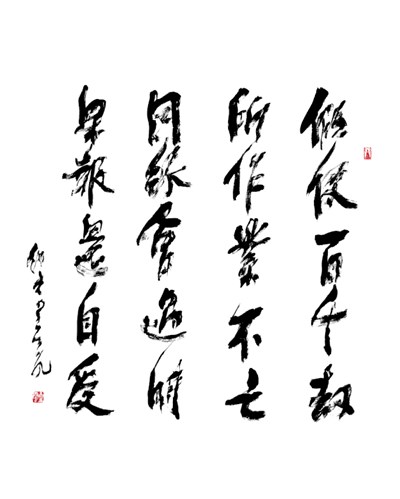 假使百千劫
所作業不亡
因緣會遇時
果報還自受